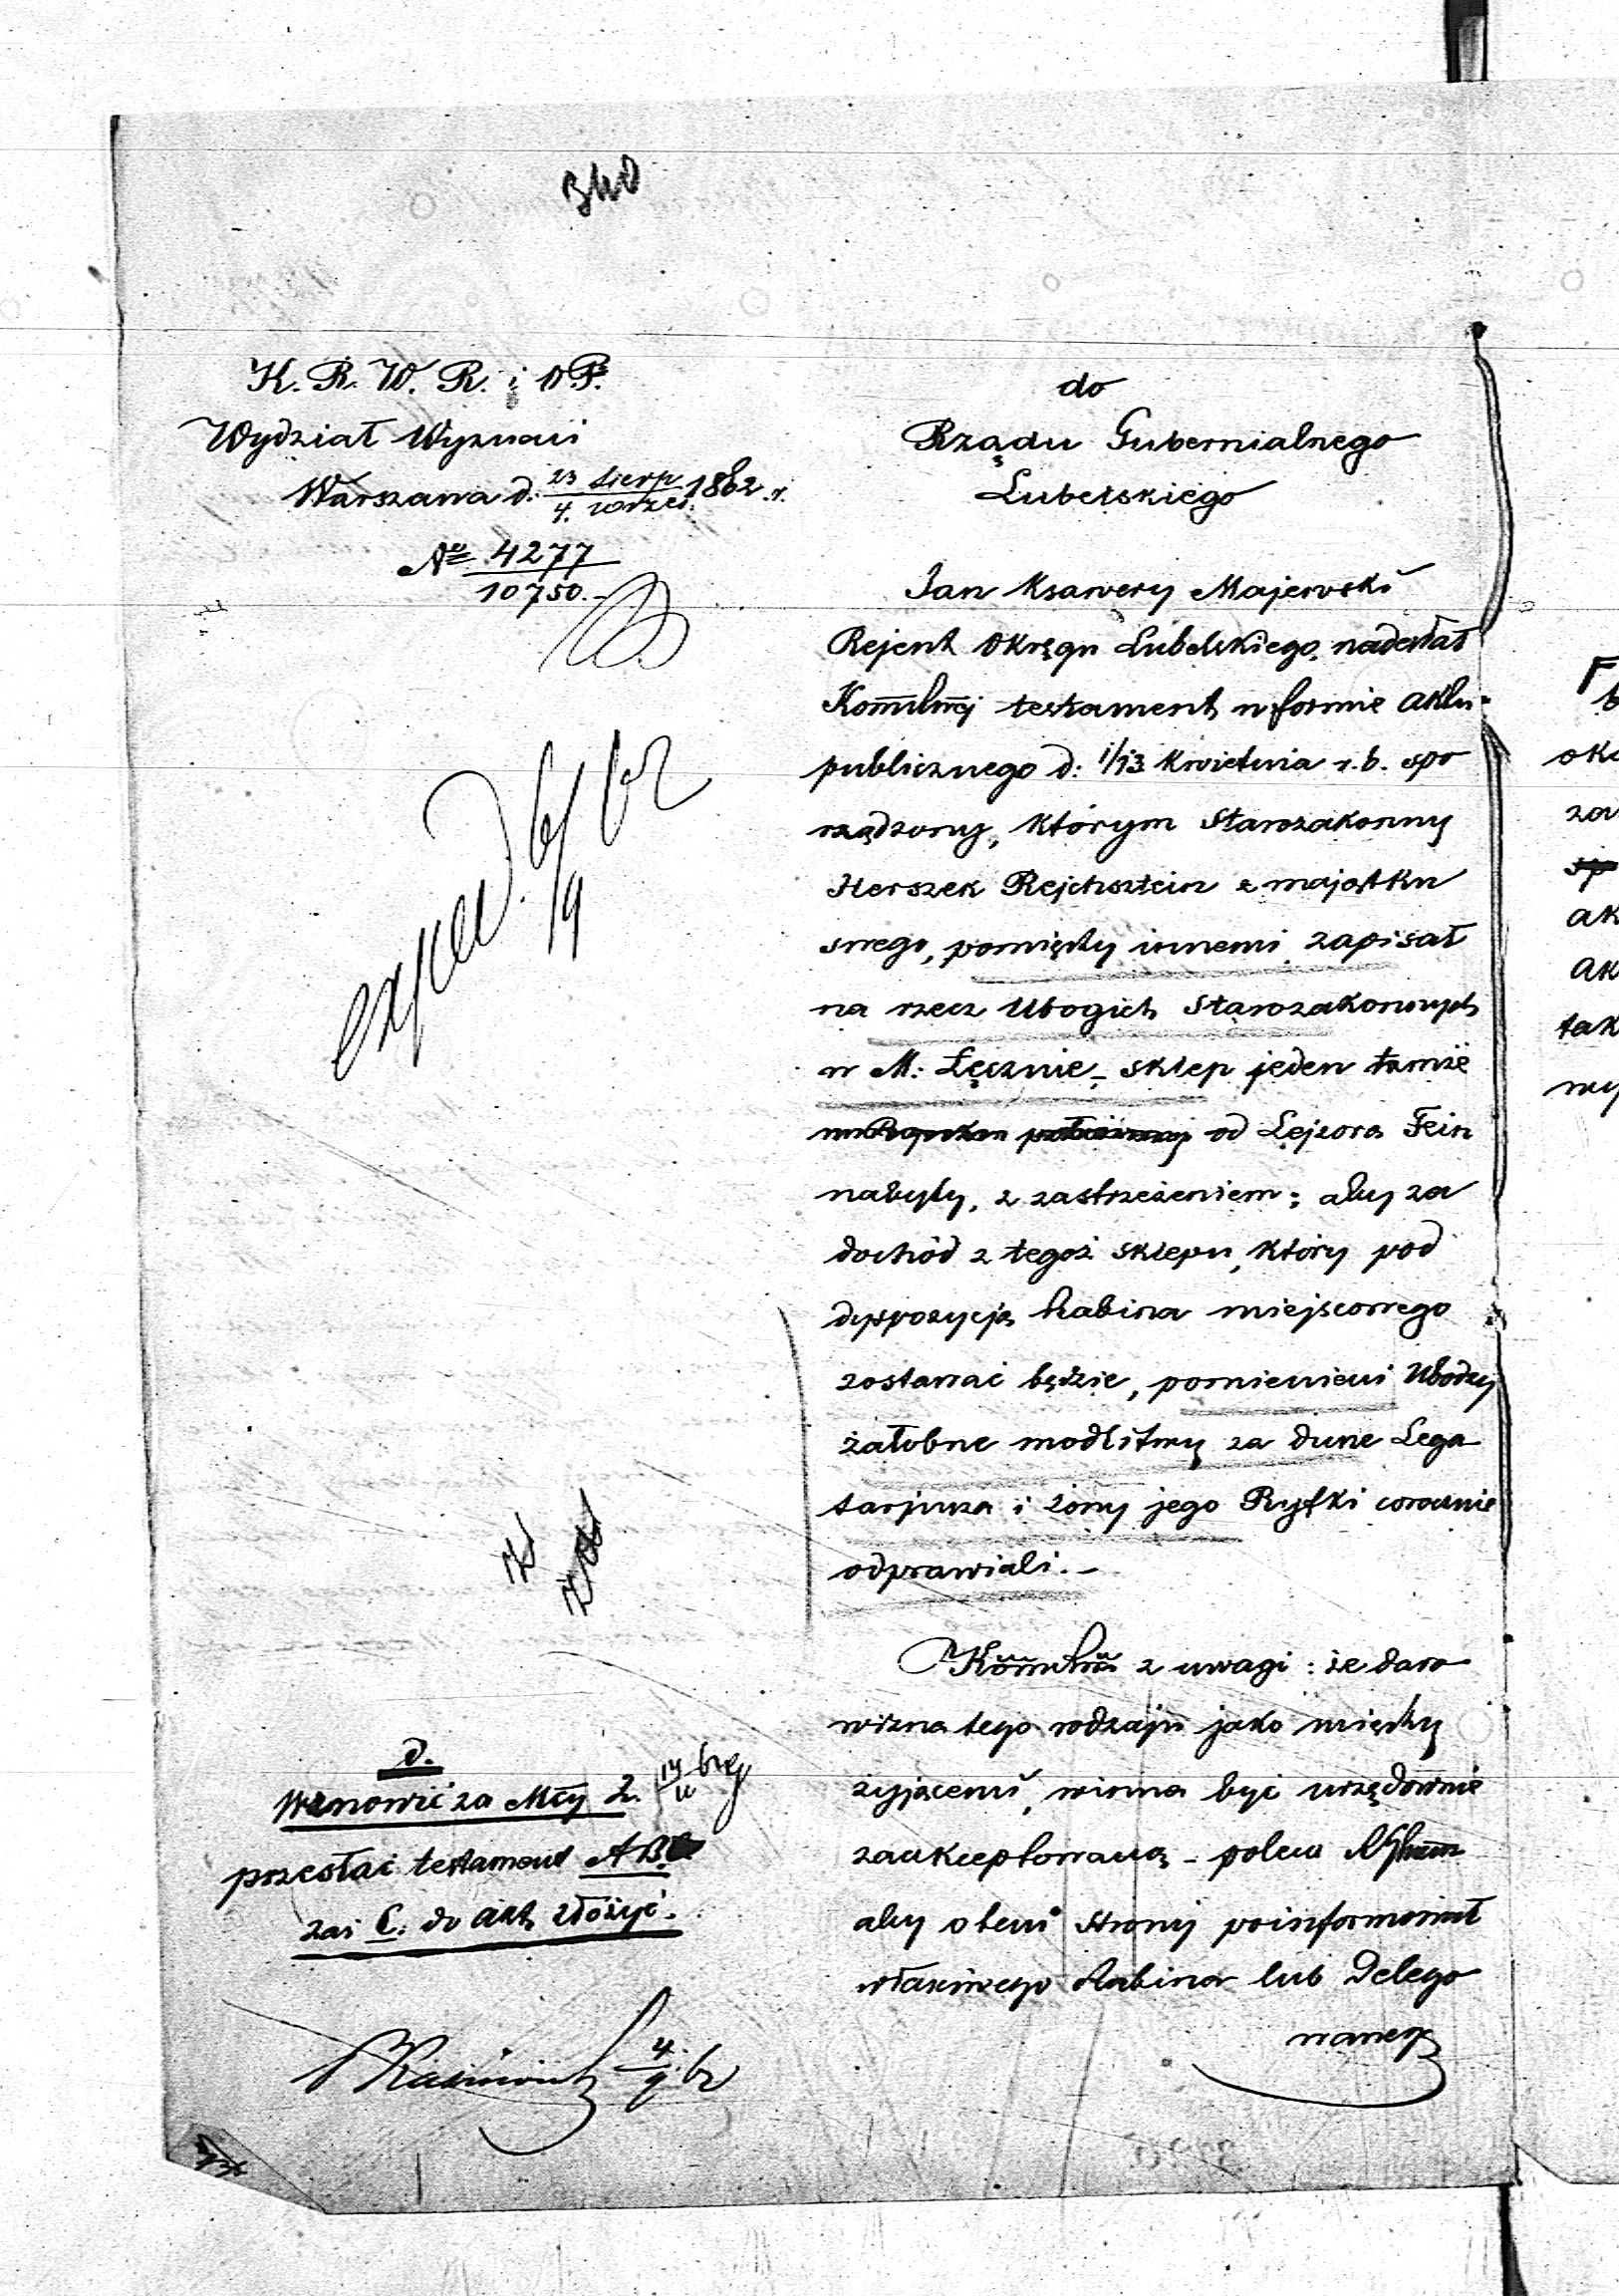 340
K. R. W. R. i O. P.
Wydział Wyznań
Warszawa d. 23 Sierp / 4. wrześ. 1862 r.
No 4277 / 10750.-
exped. 6/9 62
d.
Wznowić za Mcy 2.
przesłać testament A B
zaś C. do akt złożyć.
4./9. 62
do
Rządu Gubernialnego
Lubelskiego
Jan Ksawery Majewski
Rejent Okręgu Lubelskiego, nadesłał
testament w formie aktu
publicznego d: 1/13 Kwietnia r. b. spo
rządzony, którym Starozakonny
Herszek Rejchsztein z majątku
swego, pomiędzy innemi, zapisał
na rzecz Ubogich Starozakonnych
w M: Łęcznie, - sklep jeden tamże
od Lejzora Fein
nabyty, z zastrzeżeniem; aby za
dochód z tegoż sklepu, który pod
dyspozycją Rabina miejscowego
zostawać będzie, pomienieni Ubodzy
żałobne modlitwy za dusze Lega
tarjusza i żony jego Ryfki corocznie
odprawiali. -
z uwagi: że daro
wizna tego rodzaju jako między
żyjącemi, winna być urzędownie
zaakceptowaną - poleca
aby o tem strony poinformował
właściwego Rabina lub Delego
wanego
oka
za
ak
ak
tak